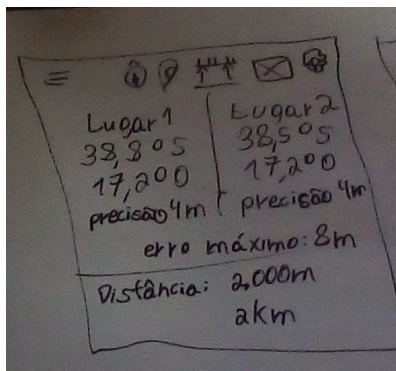 Lugar 1
38,8º S
17,2º O
precisão 4m
Lugar 2
38,5º S
17,2º O
precisão 4m
erro máximo: 8m
Distância: 2,000m
2km